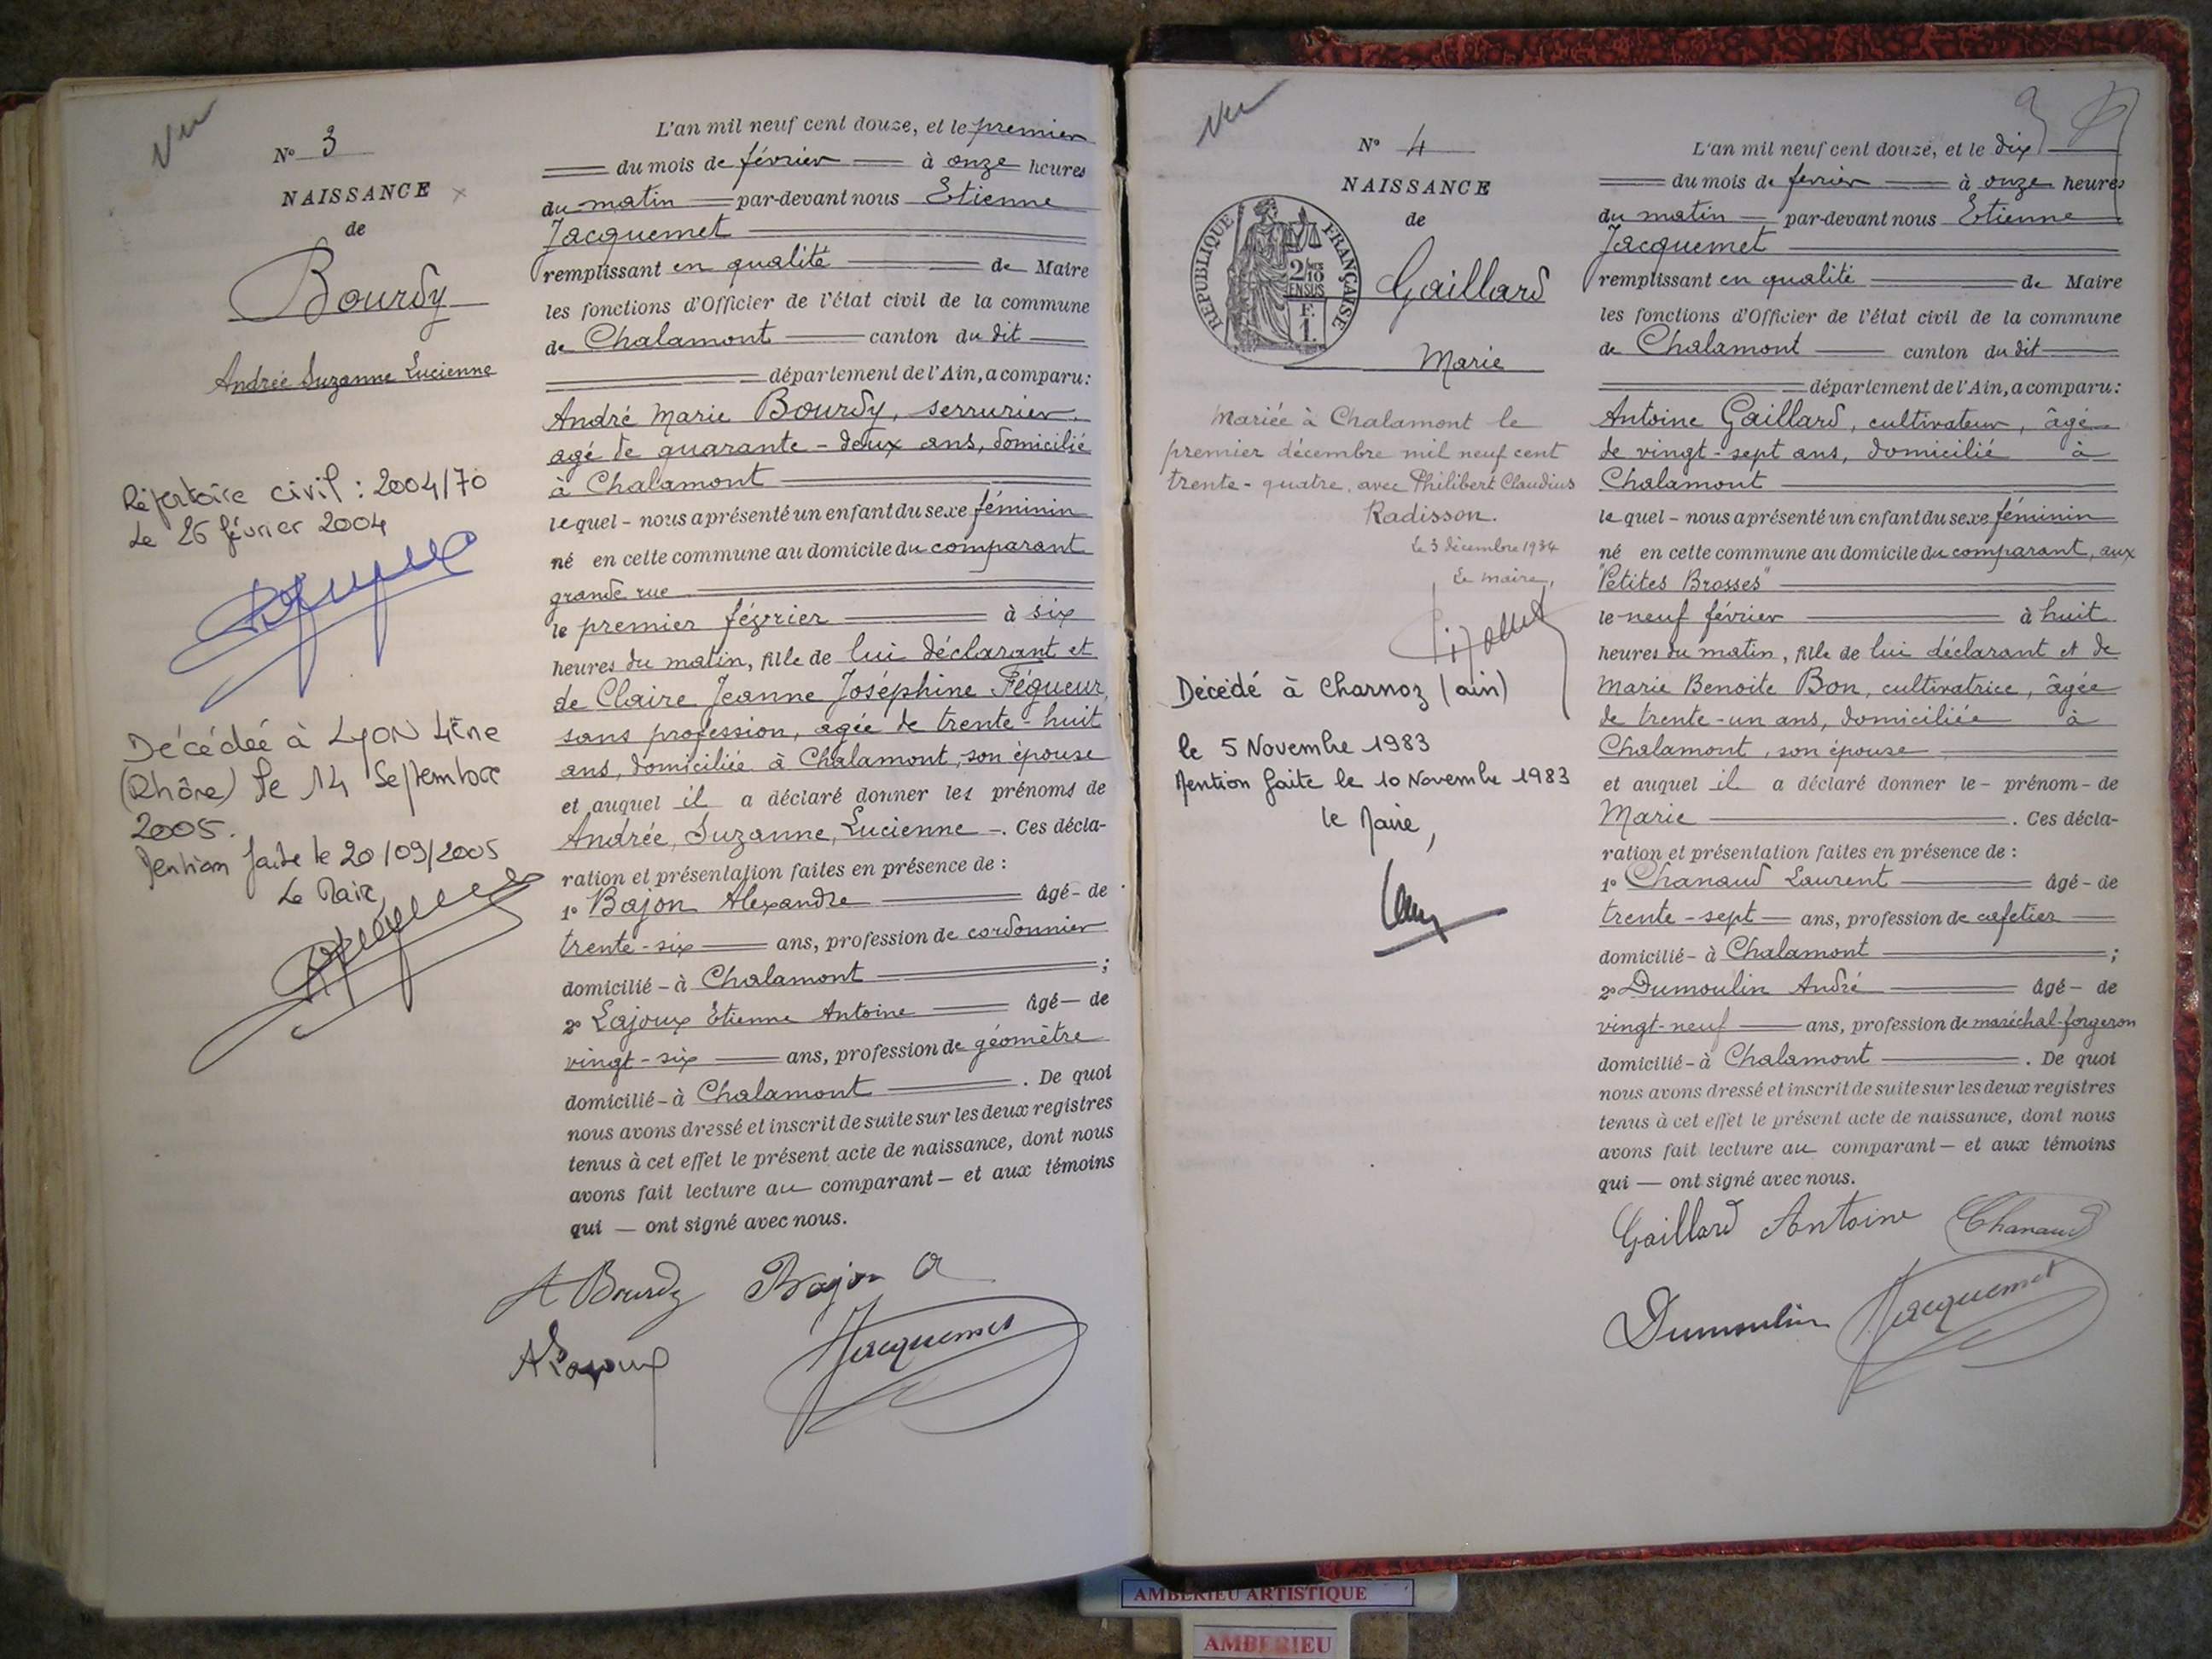 Vu
N° 3
NAISSANCE
de
Bourdy
Andrée Suzanne Lucienne
Répertoire civil : 2004/70
Le 26 février 2004
Décédée à LYON 4ème
(Rhône) le 14 Septembre
2005.
Mention faite le 20/09/2005
Le Maire,
L'an mil neuf cent douze, et le premier
du mois de février à onze heures
du matin par-devant nous Etienne
Jacquemet
remplissant en qualité de Maire
les fonctions d'Officier de l'état civil de la commune
de Chalamont canton du dit
département de l'Ain, a comparu:
André Marie Bourdy, serrurier,
agé de quarante-deux ans, domicilié
à Chalamont
lequel - nous a présenté un enfant du sexe féminin
né en cette commune au domicile du comparant
grande rue
le premier février à six
heures du matin, fille de lui déclarant et
de Claire Jeanne Joséphine Fégueur,
sans profession, agée de trente-huit
ans, domiciliée à Chalamont, son épouse
et auquel il a déclaré donner les prénoms de
Andrée, Suzanne, Lucienne -. Ces décla-
ration et présentation faites en présence de :
1° Bajon Alexandre âgé - de
trente-six ans, profession de cordonnier
domicilié - à Chalamont ;
2° Lajoux Etienne Antoine âgé - de
vingt-six ans, profession de géomètre
domicilié - à Chalamont . De quoi
nous avons dressé et inscrit de suite sur les deux registres
tenus à cet effet le présent acte de naissance, dont nous
avons fait lecture au comparant - et aux témoins
qui - ont signé avec nous.
A Bourdy Bajon A
A Lajoux Jacquemet
Vu
N° 4
NAISSANCE
de
RÉPUBLIQUE FRANÇAISE
2/10
EN SUS
F.
1.
Gaillard
Marie
Mariée à Chalamont le
premier décembre mil neuf cent
trente-quatre, avec Philibert Claudius
Radisson.
Le 3 décembre 1934
Le maire,
Décédé à Charnoz (ain)
le 5 Novembre 1983
Mention faite le 10 Novembre 1983
le Maire,
L'an mil neuf cent douze, et le dix
du mois de fevrier à onze heures
du matin par-devant nous Etienne
Jacquemet
remplissant en qualité de Maire
les fonctions d'Officier de l'état civil de la commune
de Chalamont canton du dit
département de l'Ain, a comparu:
Antoine Gaillard, cultivateur, âgé
de vingt-sept ans, domicilié à
Chalamont
lequel - nous a présenté un enfant du sexe féminin
né en cette commune au domicile du comparant, aux
"Petites Brosses"
le neuf février à huit
heures du matin, fille de lui déclarant et de
Marie Benoite Bon, cultivatrice, âgée
de trente-un ans, domiciliée à
Chalamont, son épouse
et auquel il a déclaré donner le - prénom - de
Marie . Ces décla-
ration et présentation faites en présence de :
1° Chanaud Laurent âgé - de
trente-sept ans, profession de cafetier
domicilié - à Chalamont ;
2° Dumoulin André âgé - de
vingt-neuf ans, profession de maréchal-forgeron
domicilié - à Chalamont . De quoi
nous avons dressé et inscrit de suite sur les deux registres
tenus à cet effet le présent acte de naissance, dont nous
avons fait lecture au comparant - et aux témoins
qui - ont signé avec nous.
Gaillard Antoine Chanaud
Dumoulin Jacquemet
AMBERIEU ARTISTIQUE
AMBERIEU